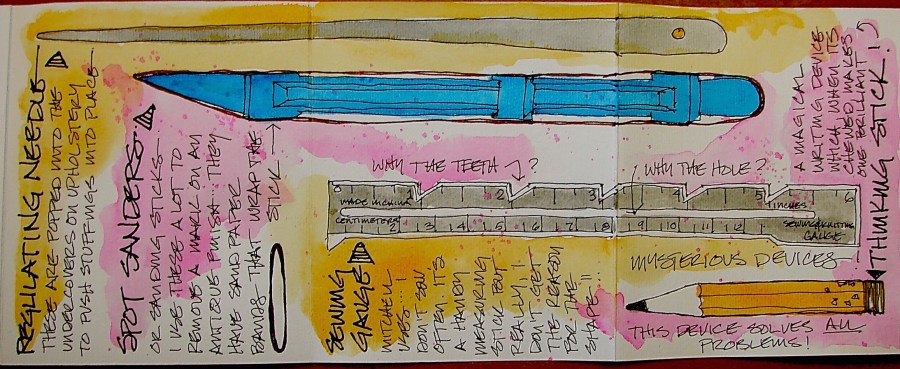 REGULATING NEEDLE
THESE ARE POPPED INTO THE
UNDERCOVERS ON UPHOLSTERY
TO PUSH STUFFINGS INTO PLACE
SPOT SANDERS
OR SANDING STICKS
I USE THESE A LOT TO
REMOVE A MARK ON AN
ANTIQUE FINISH THEY
HAVE SAND PAPER
BANDS THAT WRAP THE
STICK
WHY THE TEETH ?
WHY THE HOLE?
0 1 2 3 4 5 6
MADE IN CHINA
INCHES
CENTIMETERS 2 3 4 5 6 7 8 9 10 11 12 1
SEWING/KNITTING
GAUGE
SEWING
GAUGE
MITCHELL
USES!- I
DON'T SEW
OFTEN. IT'S
A HANDY
MEASURING
STICK BUT
REALLY, I
DON'T GET
THE REASON
FOR THE
SHAPE!!
MYSTERIOUS DEVICES
A MAGICAL
WRITING DEVICE
WHICH WHEN ITS
CHEWED, MAKES
ONE BRILLIANT!
THINKING STICK!
THIS DEVICE SOLVES ALL
PROBLEMS!